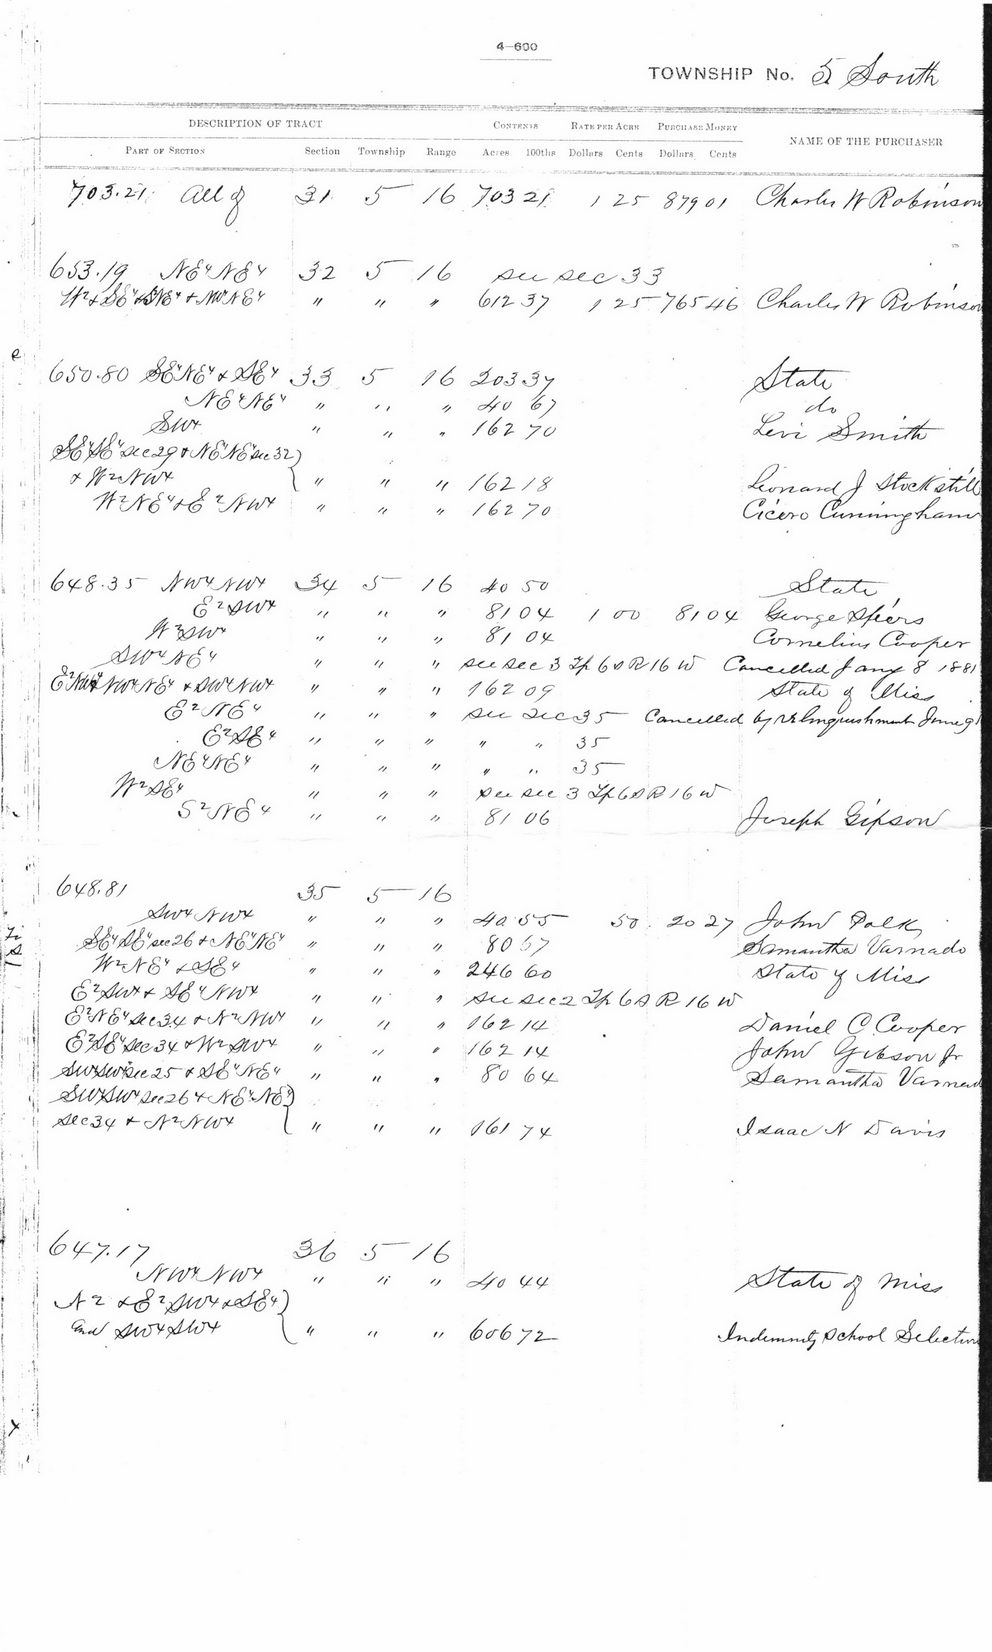 4—600
TOWNSHIP No. 5 South
DESCRIPTION OF TRACT CONTENTS RATE PER ACRE PURCHASE MONEY NAME OF THE PURCHASER
PART OF SECTION Section Township Range Acres 100ths Dollars Cents Dollars Cents
703.21 All of 31 5 16 703 21 1 25 879 01 Charles W Robinson
653.19 NE4 NE4 32 5 16 see sec 33
W2 & SE4 & SE4 NE4 & NW4 NE4 " " " 612 37 1 25 765 46 Charles W Robinson
650.80 SE4 NE4 & SE4 33 5 16 203 37 State
NE4 NE4 " " " 40 67 do
SW4 " " " 162 70 Levi Smith
SE4 SE4 sec 29 & NE4 NE4 sec 32)
& W2 NW4 " " " 162 18 Leonard J Stockstill
W2 NE4 & E2 NW4 " " " 162 70 Cicero Cunningham
648.35 NW4 NW4 34 5 16 40 50 State
E2 SW4 " " " 81 04 1 00 81 04 George Speers
W2 SW4 " " " 81 04 Cornelius Cooper
SW4 NE4 " " " see sec 3 Tp 6 S R 16 W Cancelled Jany 8 1881
E2 NW4 NW4 NE4 & SW4 NW4 " " " 162 09 State of Miss
E2 NE4 " " " see sec 35 Cancelled by relinquishment June 9
E2 SE4 " " " " " 35
NE4 NE4 " " " " " 35
W2 SE4 " " " see sec 3 Tp 6 S R 16 W
S2 NE4 " " " 81 06 Joseph Gipson
648.81 35 5 16
SW4 NW4 " " " 40 55 50 20 27 John Polk
SE4 SE4 sec 26 & NE4 NE4 " " " 80 67 Samantha Varnado
W2 NE4 & SE4 " " " 246 60 State of Miss
E2 SW4 & SE4 NW4 " " " see sec 2 Tp 6 S R 16 W
E2 NE4 sec 34 & N2 NW4 " " " 162 14 Daniel C Cooper
E2 SE4 sec 34 & W2 SW4 " " " 162 14 John Gibson Jr
SW4 SW4 sec 25 & SE4 NE4 " " " 80 64 Samantha Varnad
SW4 SW4 sec 26 & NE4 NE4)
sec 34 & N2 NW4 " " " 161 74 Isaac N Davis
647.17 36 5 16
NW4 NW4 " " " 40 44 State of Miss
N2 & E2 SW4 & SE4)
and SW4 SW4 " " " 606 72 Indemnity School Selection